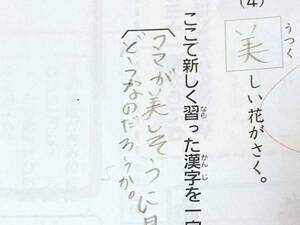 (4)
うつく
美しい花がさく。
なら かん じ
ここで新しく習った漢字を一
ママが美しそうに見
どうなのだろうか。